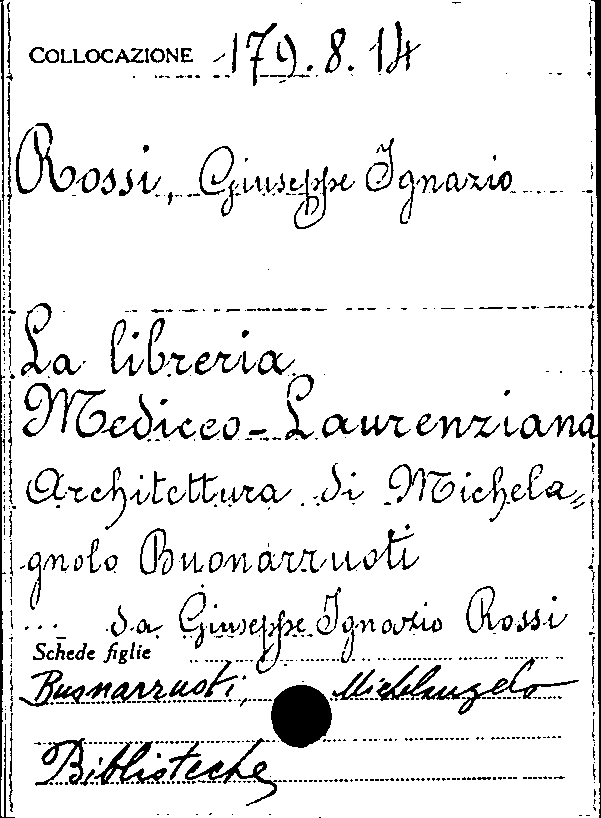 COLLOCAZIONE 179.8.14
Rossi, Giuseppe Ignazio
La libreria
Mediceo-Laurenziana
Architettura di Michela=
gnolo Buonarruoti
... da Giuseppe Ignazio Rossi
Schede figlie
Buonarruoti, Michelangelo
Biblioteche